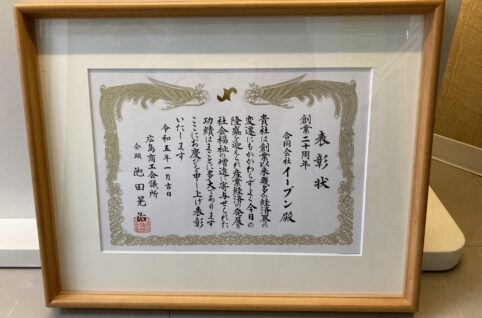 表彰状
創業二十周年
合同会社イーブン殿
貴社は創業以来幾多の経済界の
変遷にもかかわらずよく今日の
隆盛を迎えられ産業経済の発展
社会福祉の増進に寄与せられた
功績はまことに多大であります
ここにお慶びを申し上げ表彰
いたします
令和五年一月吉日
広島商工会議所
会頭 池田晃治